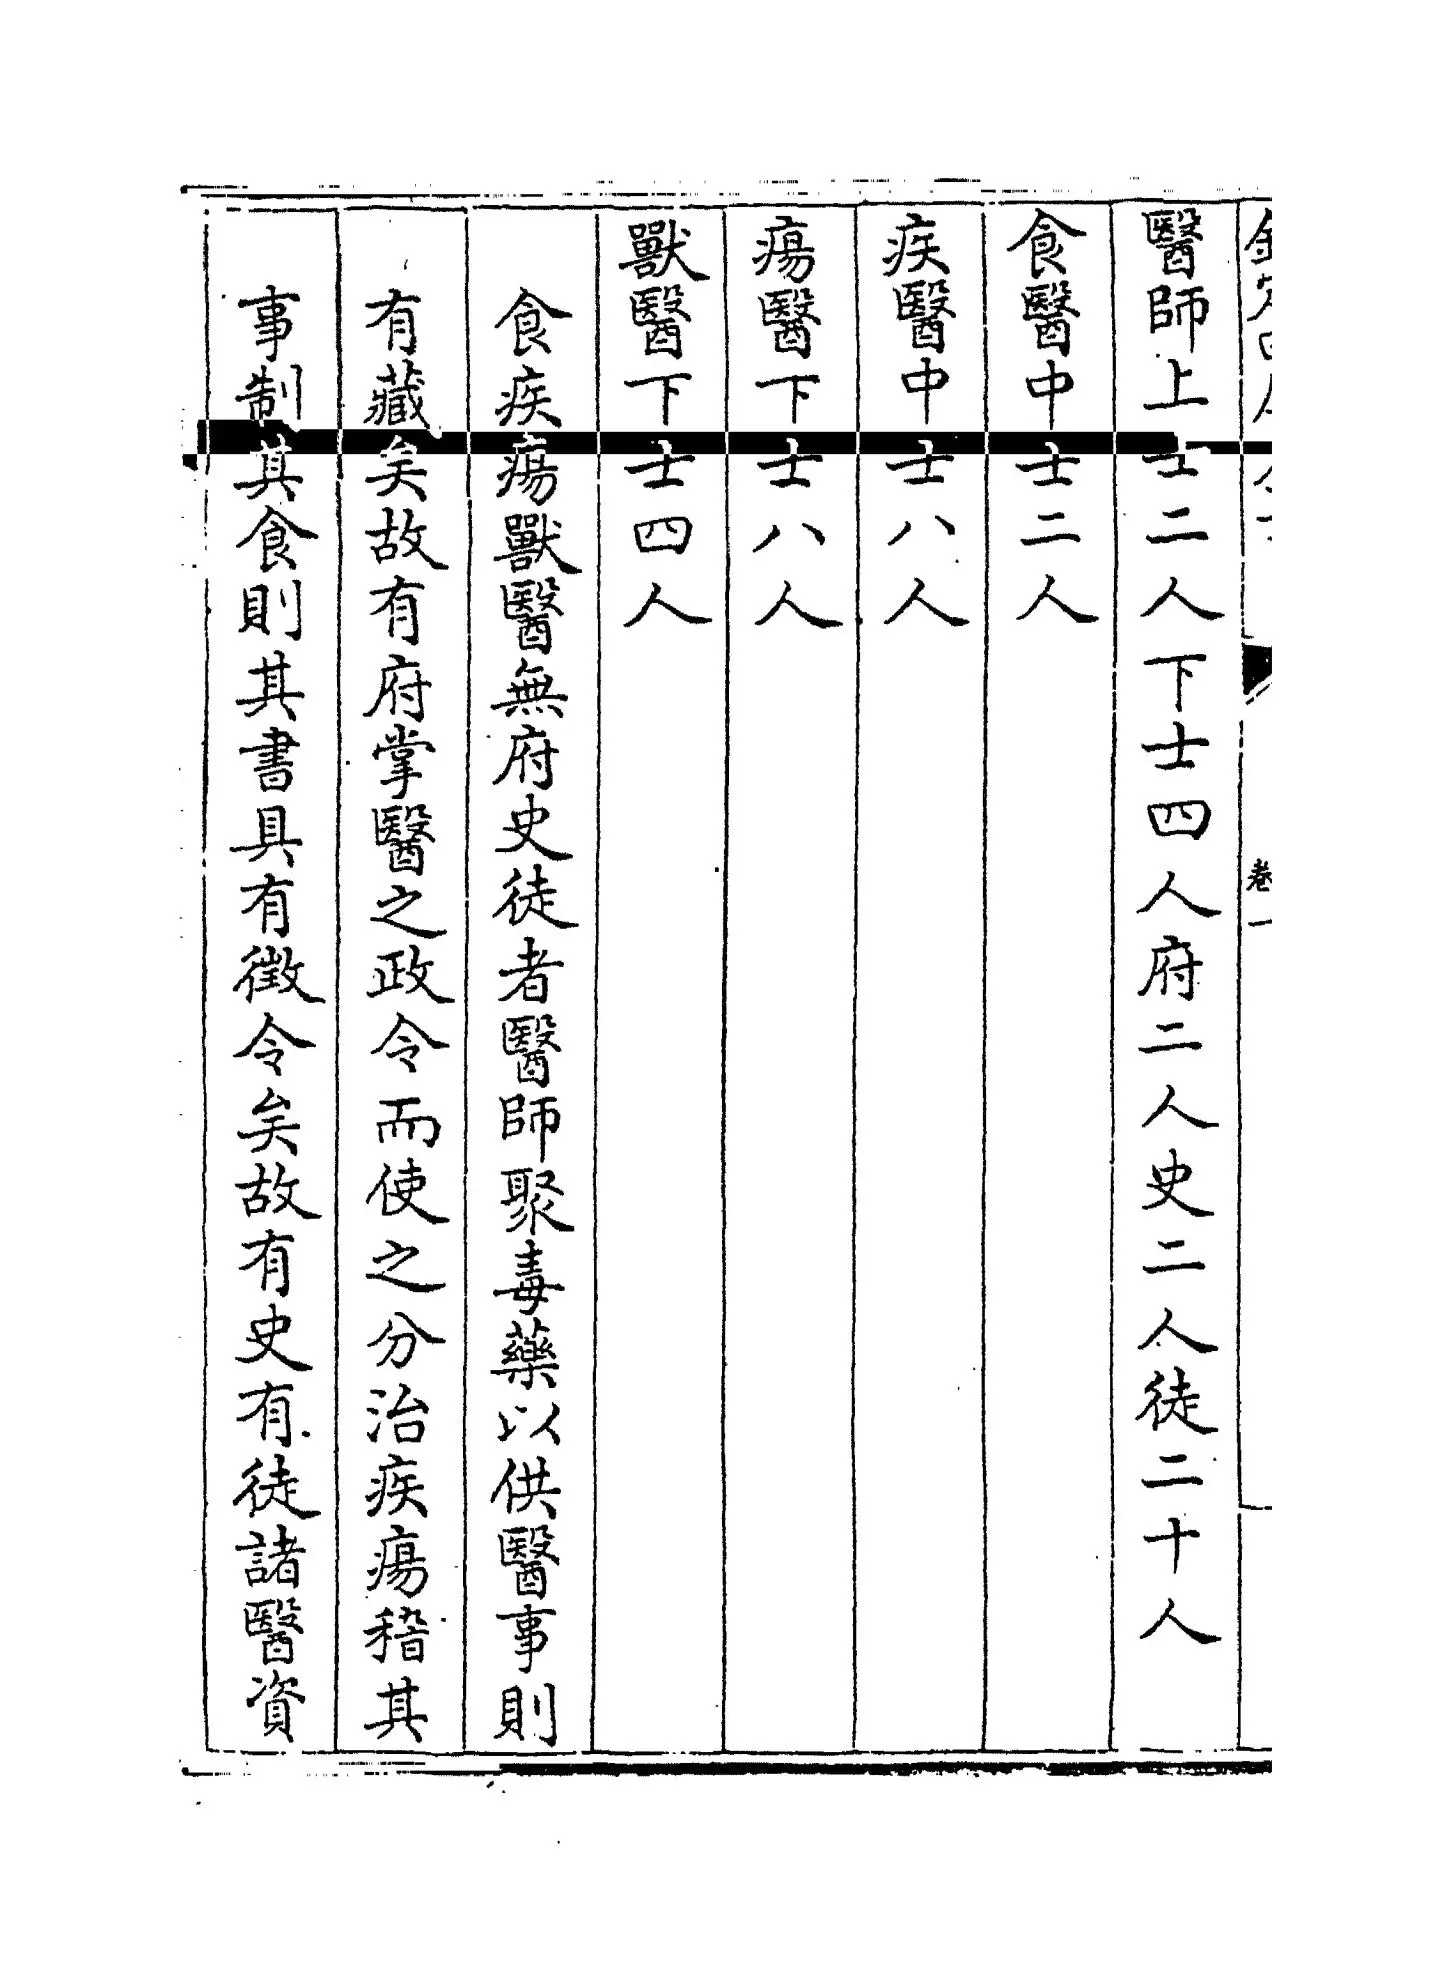 卷一
醫師上士二人下士四人府二人史二人徒二十人
食醫中士二人
疾醫中士八人
瘍醫下士八人
獸醫下士四人
食疾瘍獸醫無府史徒者醫師聚毒藥以供醫事則
有藏矣故有府掌醫之政令而使之分治疾瘍稽其
事制其食則其書具有徵令矣故有史有徒諸醫資